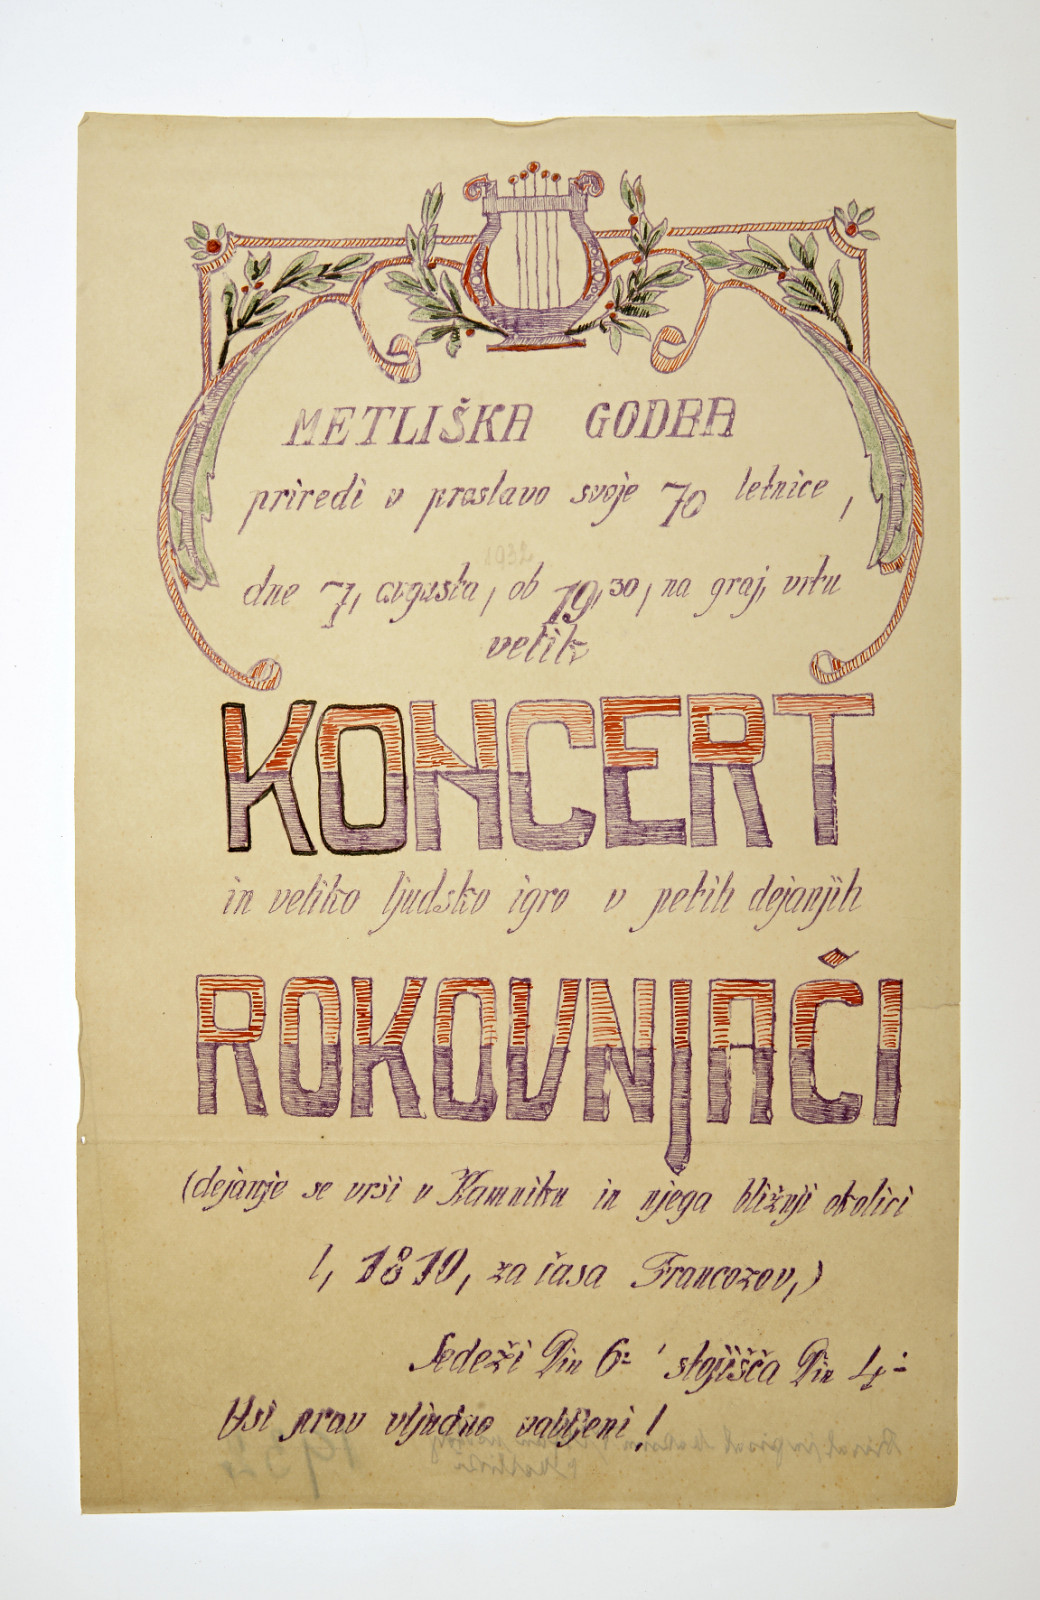 METLIŠKA GODBA
priredi v proslavo svoje 70 letnice,
1932
dne 7, avgusta, ob 19,30, na graj, vrtu
velik
KONCERT
in veliko ljudsko igro v petih dejanjih
ROKOVNJAČI
(dejanje se vrši v Kamniku in njega bližnji okolici
l, 1810, za časa Francozov,)
Sedeži Din 6- stojišča Din 4-
Vsi prav vljudno vabljeni!